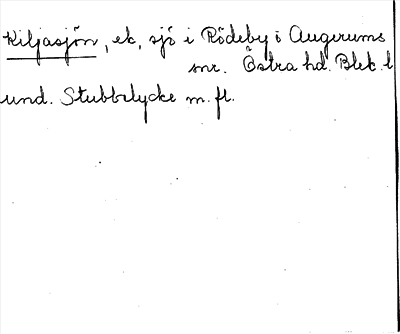 Kiljasjön, ek, sjö i Rödeby o Augerums
snr. Östra hd. Blek. l
und. Stubbelycke m. fl.